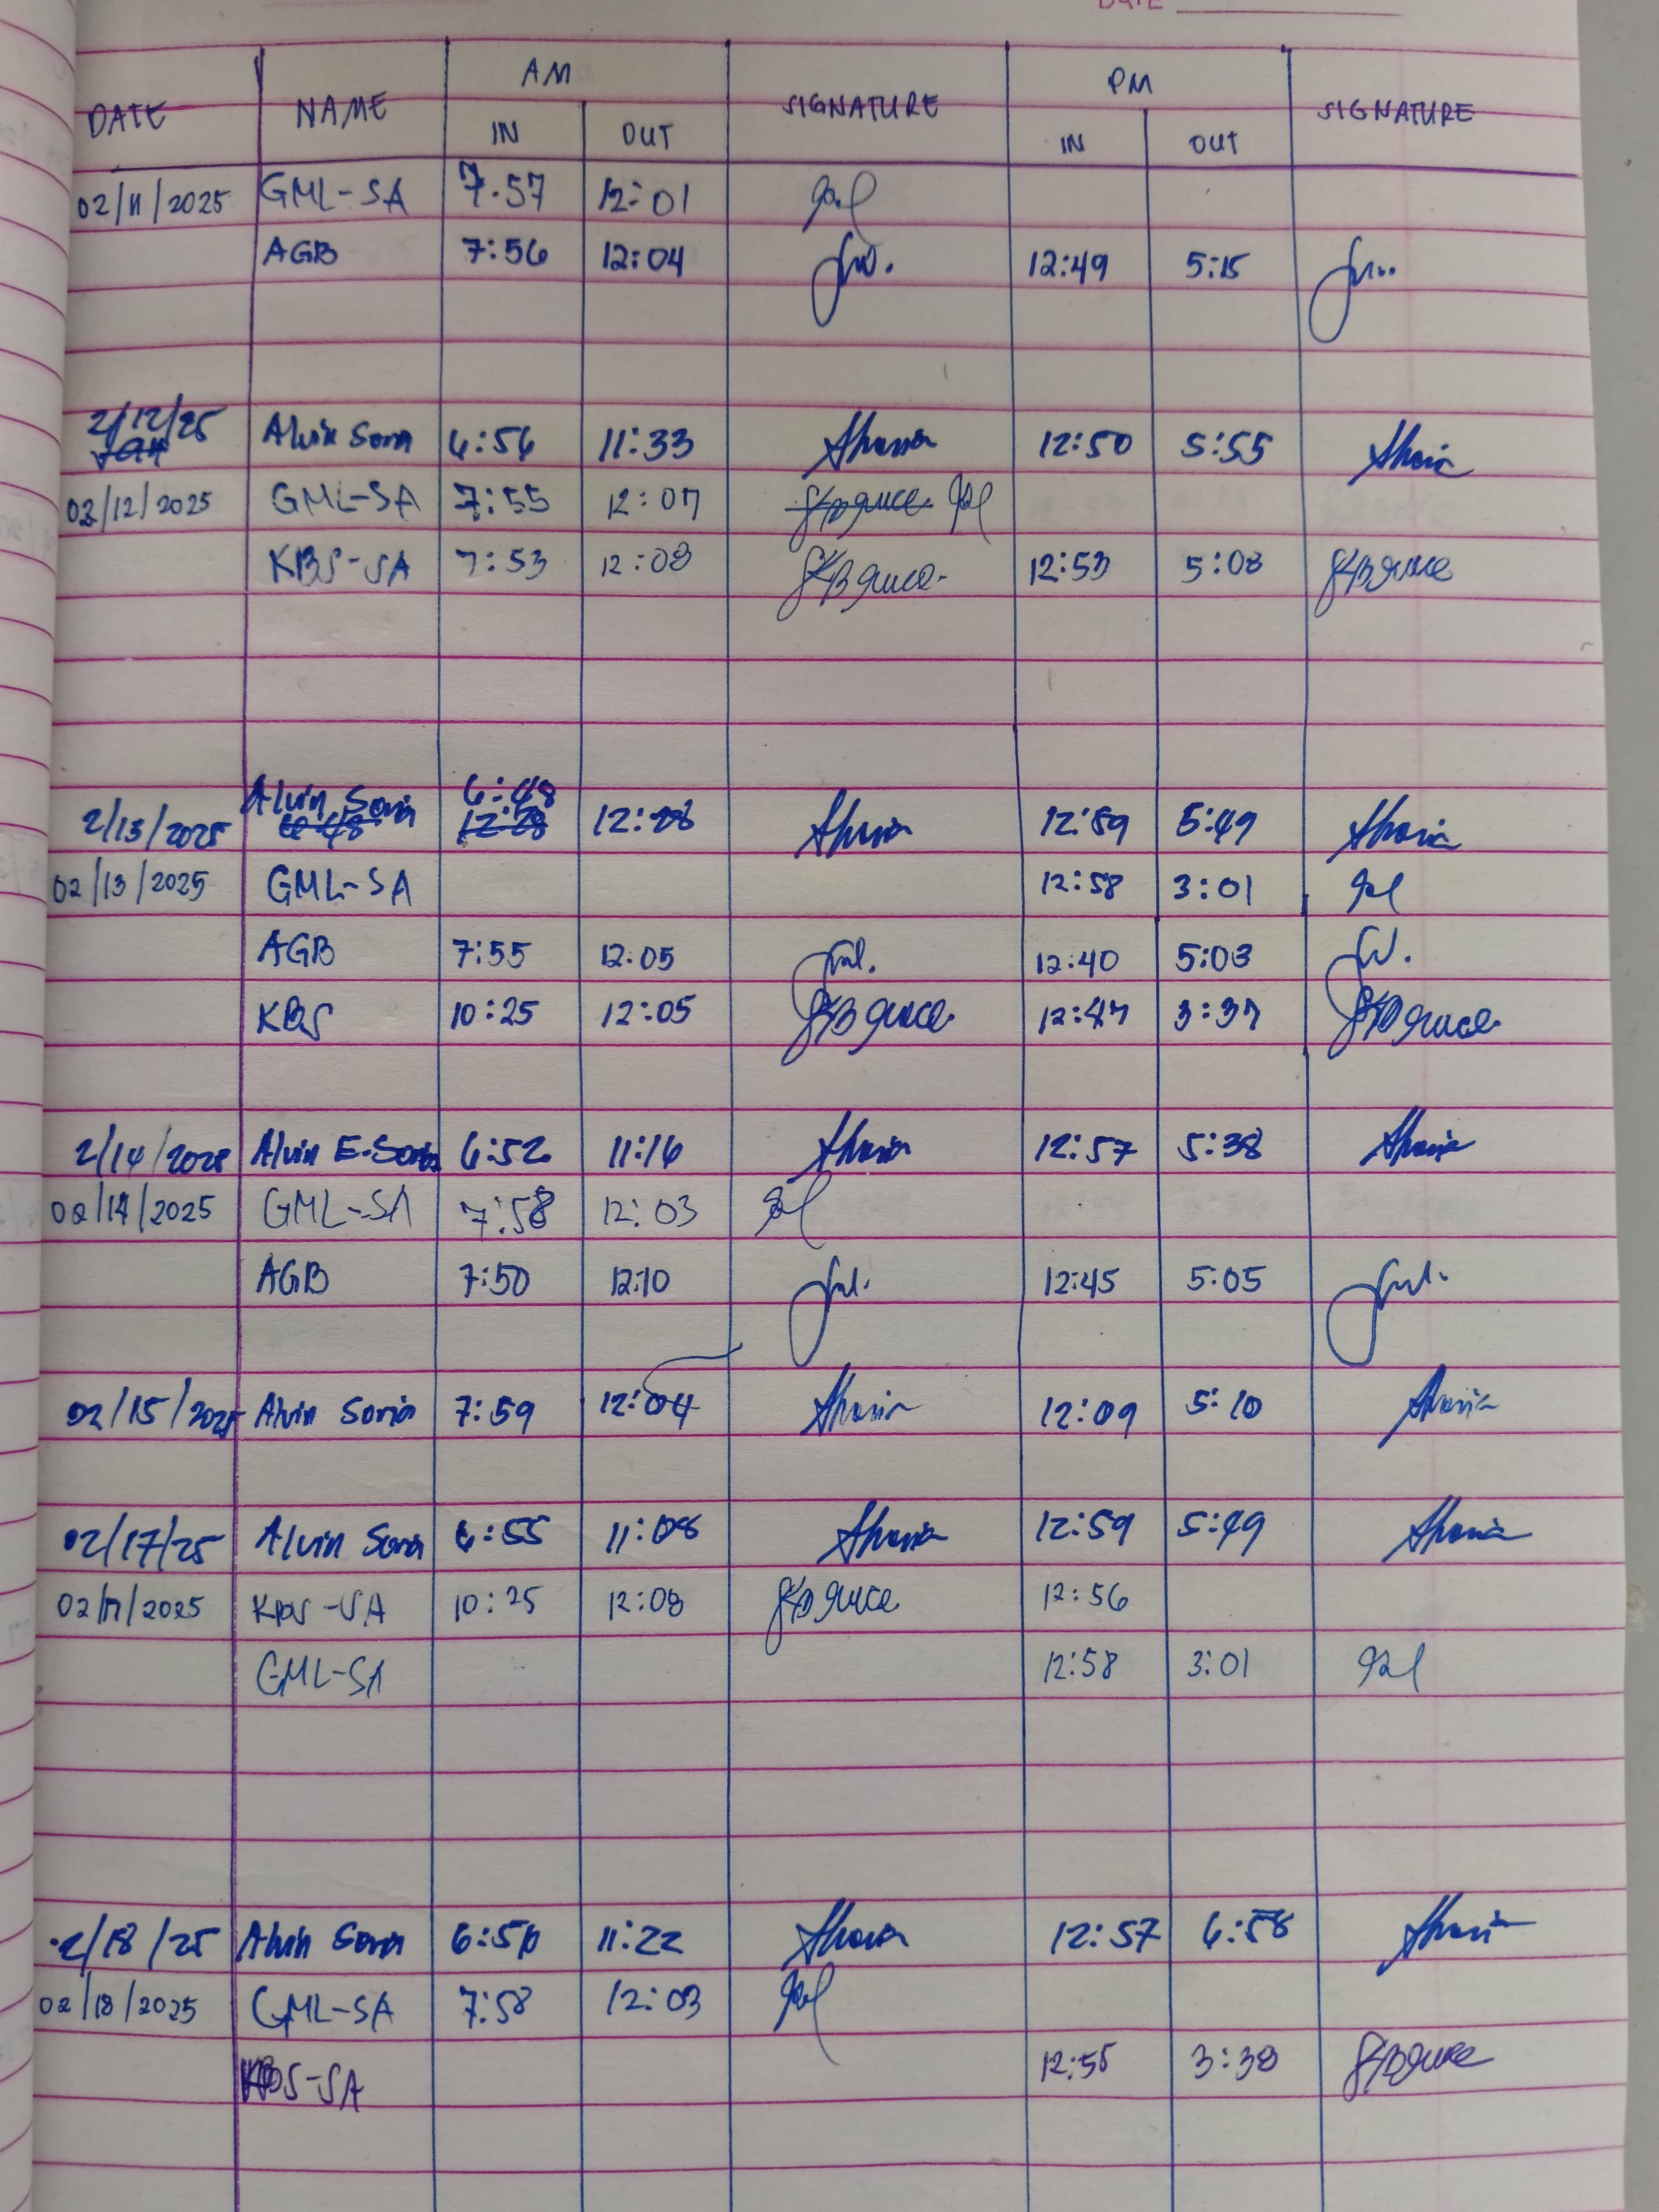 DATE
DATE NAME AM SIGNATURE PM SIGNATURE
IN OUT IN OUT
02/11/2025 GML-SA 7:57 12:01
AGB 7:56 12:04 12:49 5:15
2/12/25 Alvin Soria 6:56 11:33 12:50 5:55
02/12/2025 GML-SA 7:55 12:07
KBS-SA 7:53 12:08 12:53 5:08
2/13/2025 Alvin Soria 6:48 12:28 12:59 5:49
02/13/2025 GML-SA 12:58 3:01
AGB 7:55 12:05 12:40 5:03
KBS 10:25 12:05 12:47 3:37
2/14/2025 Alvin E. Soria 6:52 11:16 12:57 5:38
02/14/2025 GML-SA 7:58 12:03
AGB 7:50 12:10 12:45 5:05
02/15/2025 Alvin Soria 7:59 12:04 12:09 5:10
02/17/25 Alvin Soria 6:55 11:08 12:59 5:49
02/17/2025 KBS-SA 10:25 12:08 12:56
GML-SA 12:58 3:01
2/18/25 Alvin Soria 6:56 11:22 12:57 6:58
02/18/2025 GML-SA 7:58 12:03
KBS-SA 12:55 3:38